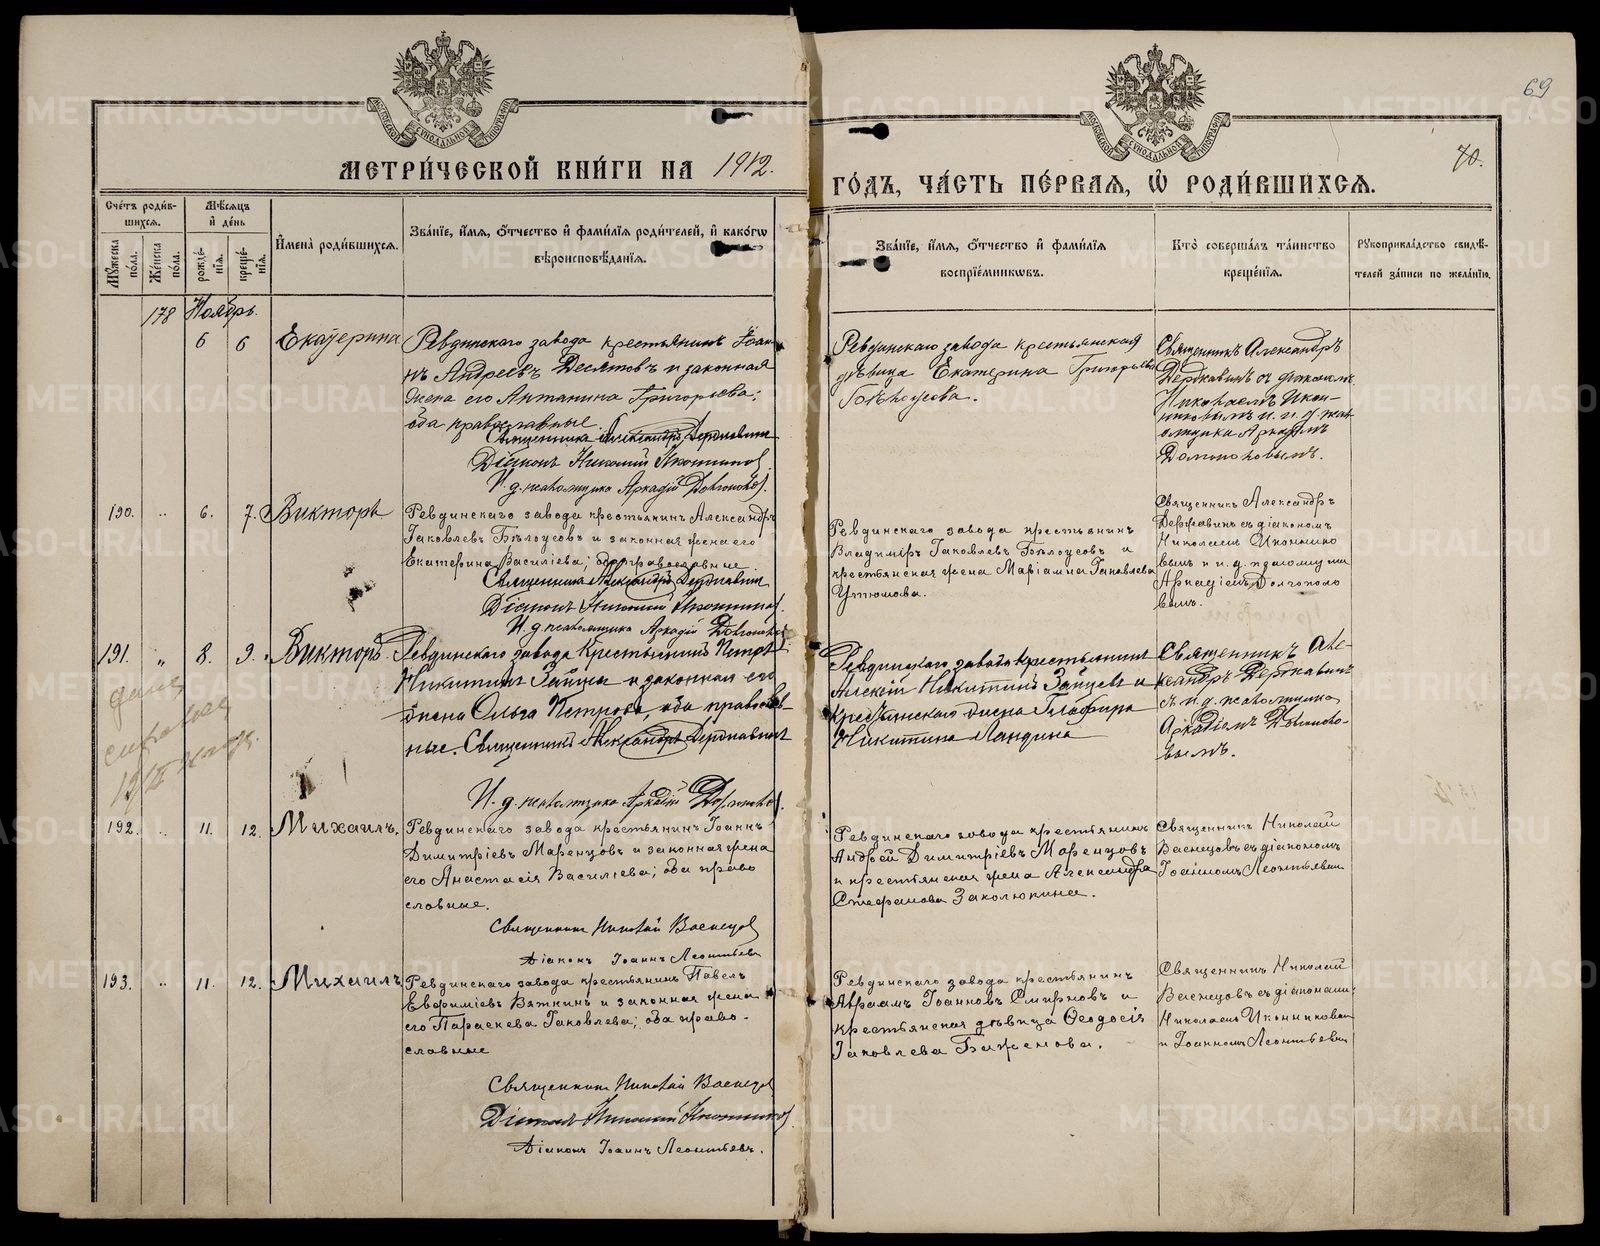 69
70.
МЕТРИ́ЧЕСКОЙ КНИ́ГИ НА 1912.
ГО́ДЪ, ЧА́СТЬ ПЕ́РВАЯ, Ѡ҆ РОДИ́ВШИХСЯ.
Сче́тъ роди́в-
шихся.
Мꙋ́жеска
по́ла.
Же́нска
по́ла.
Мѣ́сяцъ
и҆ де́нь
рожде́-
нїя.
креще́-
нїя.
И҆мена̀ роди́вшихся.
Зва́нїе, и҆́мя, ѻ҆́тчество и҆ фами́лїя роди́телей, и҆ како́гѡ
вѣроисповѣ́данїя.
Зва́нїе, и҆́мя, ѻ҆́тчество и҆ фами́лїя
воспрїе́мникѡвъ.
Кто̀ соверша́лъ та́инство
креще́нїя.
Рꙋкоприкла́дство свидѣ́-
телей за́писи по жела́нїю.
178 Ноябрь.
6 6 Екатерина
Ревдинскаго завода крестьянинъ Іоан-
нъ Андреевъ Десятовъ и законная
жена его Антонина Григорьева;
оба православные.
Священникъ Александръ Державинъ
Діаконъ Николай Иконниковъ
И. д. псаломщика Аркадій Долгополовъ.
Ревдинскаго завода крестьянская
дѣвица Екатерина Григорьева
Бѣлоусова.
Священникъ Александръ
Державинъ съ діакономъ
Николаемъ Икон-
никовымъ и и. д. псал-
омщика Аркадіемъ
Долгополовымъ.
190. „ 6. 7. Викторъ
Ревдинскаго завода крестьянинъ Александръ
Іаковлевъ Бѣлоусовъ и законная жена его
Екатерина Василіева; оба православные.
Священникъ Александръ Державинъ
Діаконъ Николай Иконниковъ.
И. д. псаломщика Аркадій Долгополовъ
Ревдинскаго завода крестьянинъ
Владиміръ Іаковлевъ Бѣлоусовъ и
крестьянская жена Маріамна Іаковлева
Утюмова.
Священникъ Александръ
Державинъ съ діакономъ
Николаемъ Иконнико
вымъ и и. д. псаломщика
Аркадіемъ Долгополо
вымъ.
191. „ 8. 9. Викторъ
Ревдинскаго завода Крестьянинъ Петръ
Никитинъ Зайцевъ и законная его
жена Ольга Петрова, оба православ-
ные. Священникъ Александръ Державинъ
И. д. псаломщика Аркадій Долгополовъ.
Ревдинскаго завода крестьянинъ
Алексій Никитинъ Зайцевъ и
крестьянская жена Глафира
Никитина Ландина
Священникъ Але-
ксандръ Державинъ
съ и. д. псаломщика
Аркадіемъ Долгополо-
вымъ.
192. „ 11. 12. Михаилъ.
Ревдинскаго завода крестьянинъ Іоаннъ
Димитріевъ Маренцовъ и законная жена
его Анастасія Василіева; оба право
славные.
Священникъ Николай Васнецовъ
Діаконъ Іоаннъ Леонтьевъ
Ревдинскаго завода крестьянинъ
Андрей Димитріевъ Маренцовъ
и крестьянская жена Александра
Стефанова Заколюкина.
Священникъ Николай
Васнецовъ съ діакономъ
Іоанномъ Леонтьевымъ
193. „ 11. 12. Михаилъ
Ревдинскаго завода крестьянинъ Павелъ
Евфиміевъ Вяткинъ и законная жена
его Параскева Іаковлева; оба право-
славные
Священникъ Николай Васнецовъ
Діаконъ Николай Иконниковъ.
Діаконъ Іоаннъ Леонтьевъ.
Ревдинскаго завода крестьянинъ
Авраамъ Іоанновъ Смирновъ и
крестьянская дѣвица Ѳеодосія
Іаковлева Баженова.
Священникъ Николай
Васнецовъ съ діаконами:
Николаемъ Иконниковымъ
и Іоанномъ Леонтьевымъ